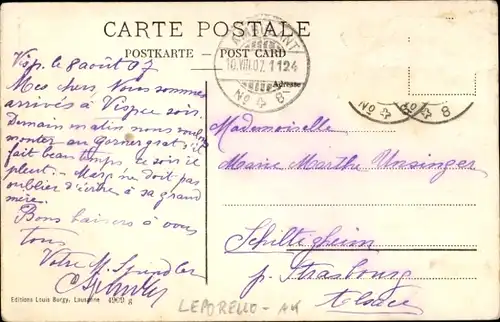 CARTE POSTALE
POSTKARTE — POST CARD
10.VIII.07. 1124
No 8
Adresse
No 8
Visp. le 8 août 07
Mes chers, Nous sommes
arrivés à Vispce soir.
Demain matin nous
monter au Gornergrat s'il
fait beau temps ce soir il
pleut. — ne doit pas
oublier d'écrire à sa grand
mère.
Bons baisers à vous
tous
Votre M. Spindler
Mademoiselle
Marie Marthe Unsinger
Schiltigheim
p. Strasbourg
Alsace
Editions Louis Burgy, Lausanne 4909 g
LEPORELLO